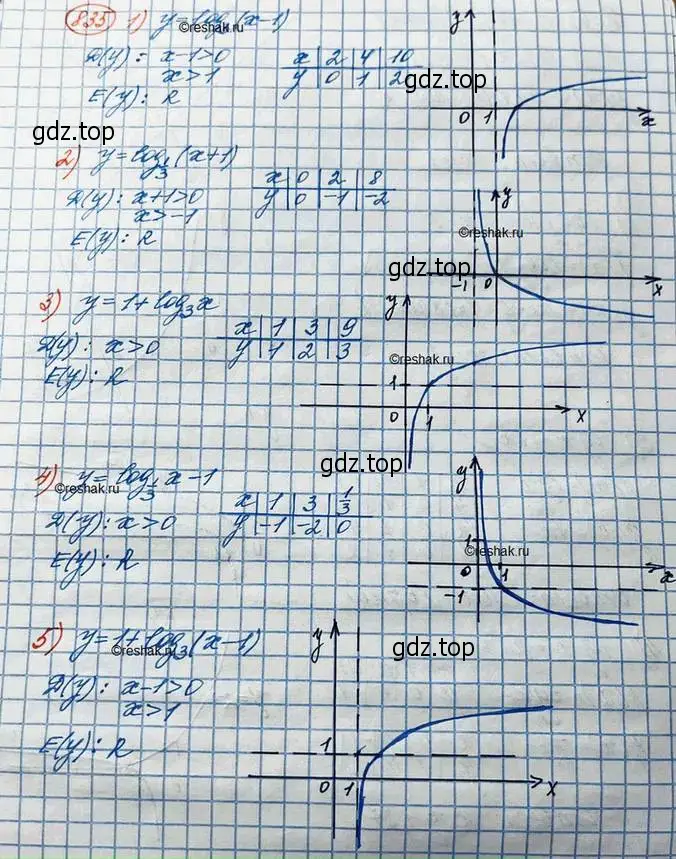 835 1) y=log₃(x-1)
©reshak.ru
D(y): x-1>0
x>1
E(y): R
x | 2 | 4 | 10
y | 0 | 1 | 2
y
0 1 x
gdz.top
gdz.top
2) y=log_{1/3}(x+1)
D(y): x+1>0
x>-1
E(y): R
x | 0 | 2 | 8
y | 0 | -1 | -2
y
©reshak.ru
gdz.top
-1 0 x
3) y=1+log₃x
D(y): x>0
E(y): R
x | 1 | 3 | 9
y | 1 | 2 | 3
y
©reshak.ru
1
0 1 x
gdz.top
4) y=log_{1/3}x-1
©reshak.ru
D(y): x>0
E(y): R
x | 1 | 3 | 1/3
y | -1 | -2 | 0
y
1
©reshak.ru
0 1 x
-1
5) y=1+log₃(x-1)
©reshak.ru
D(y): x-1>0
x>1
E(y): R
y
gdz.top
1
0 1 x